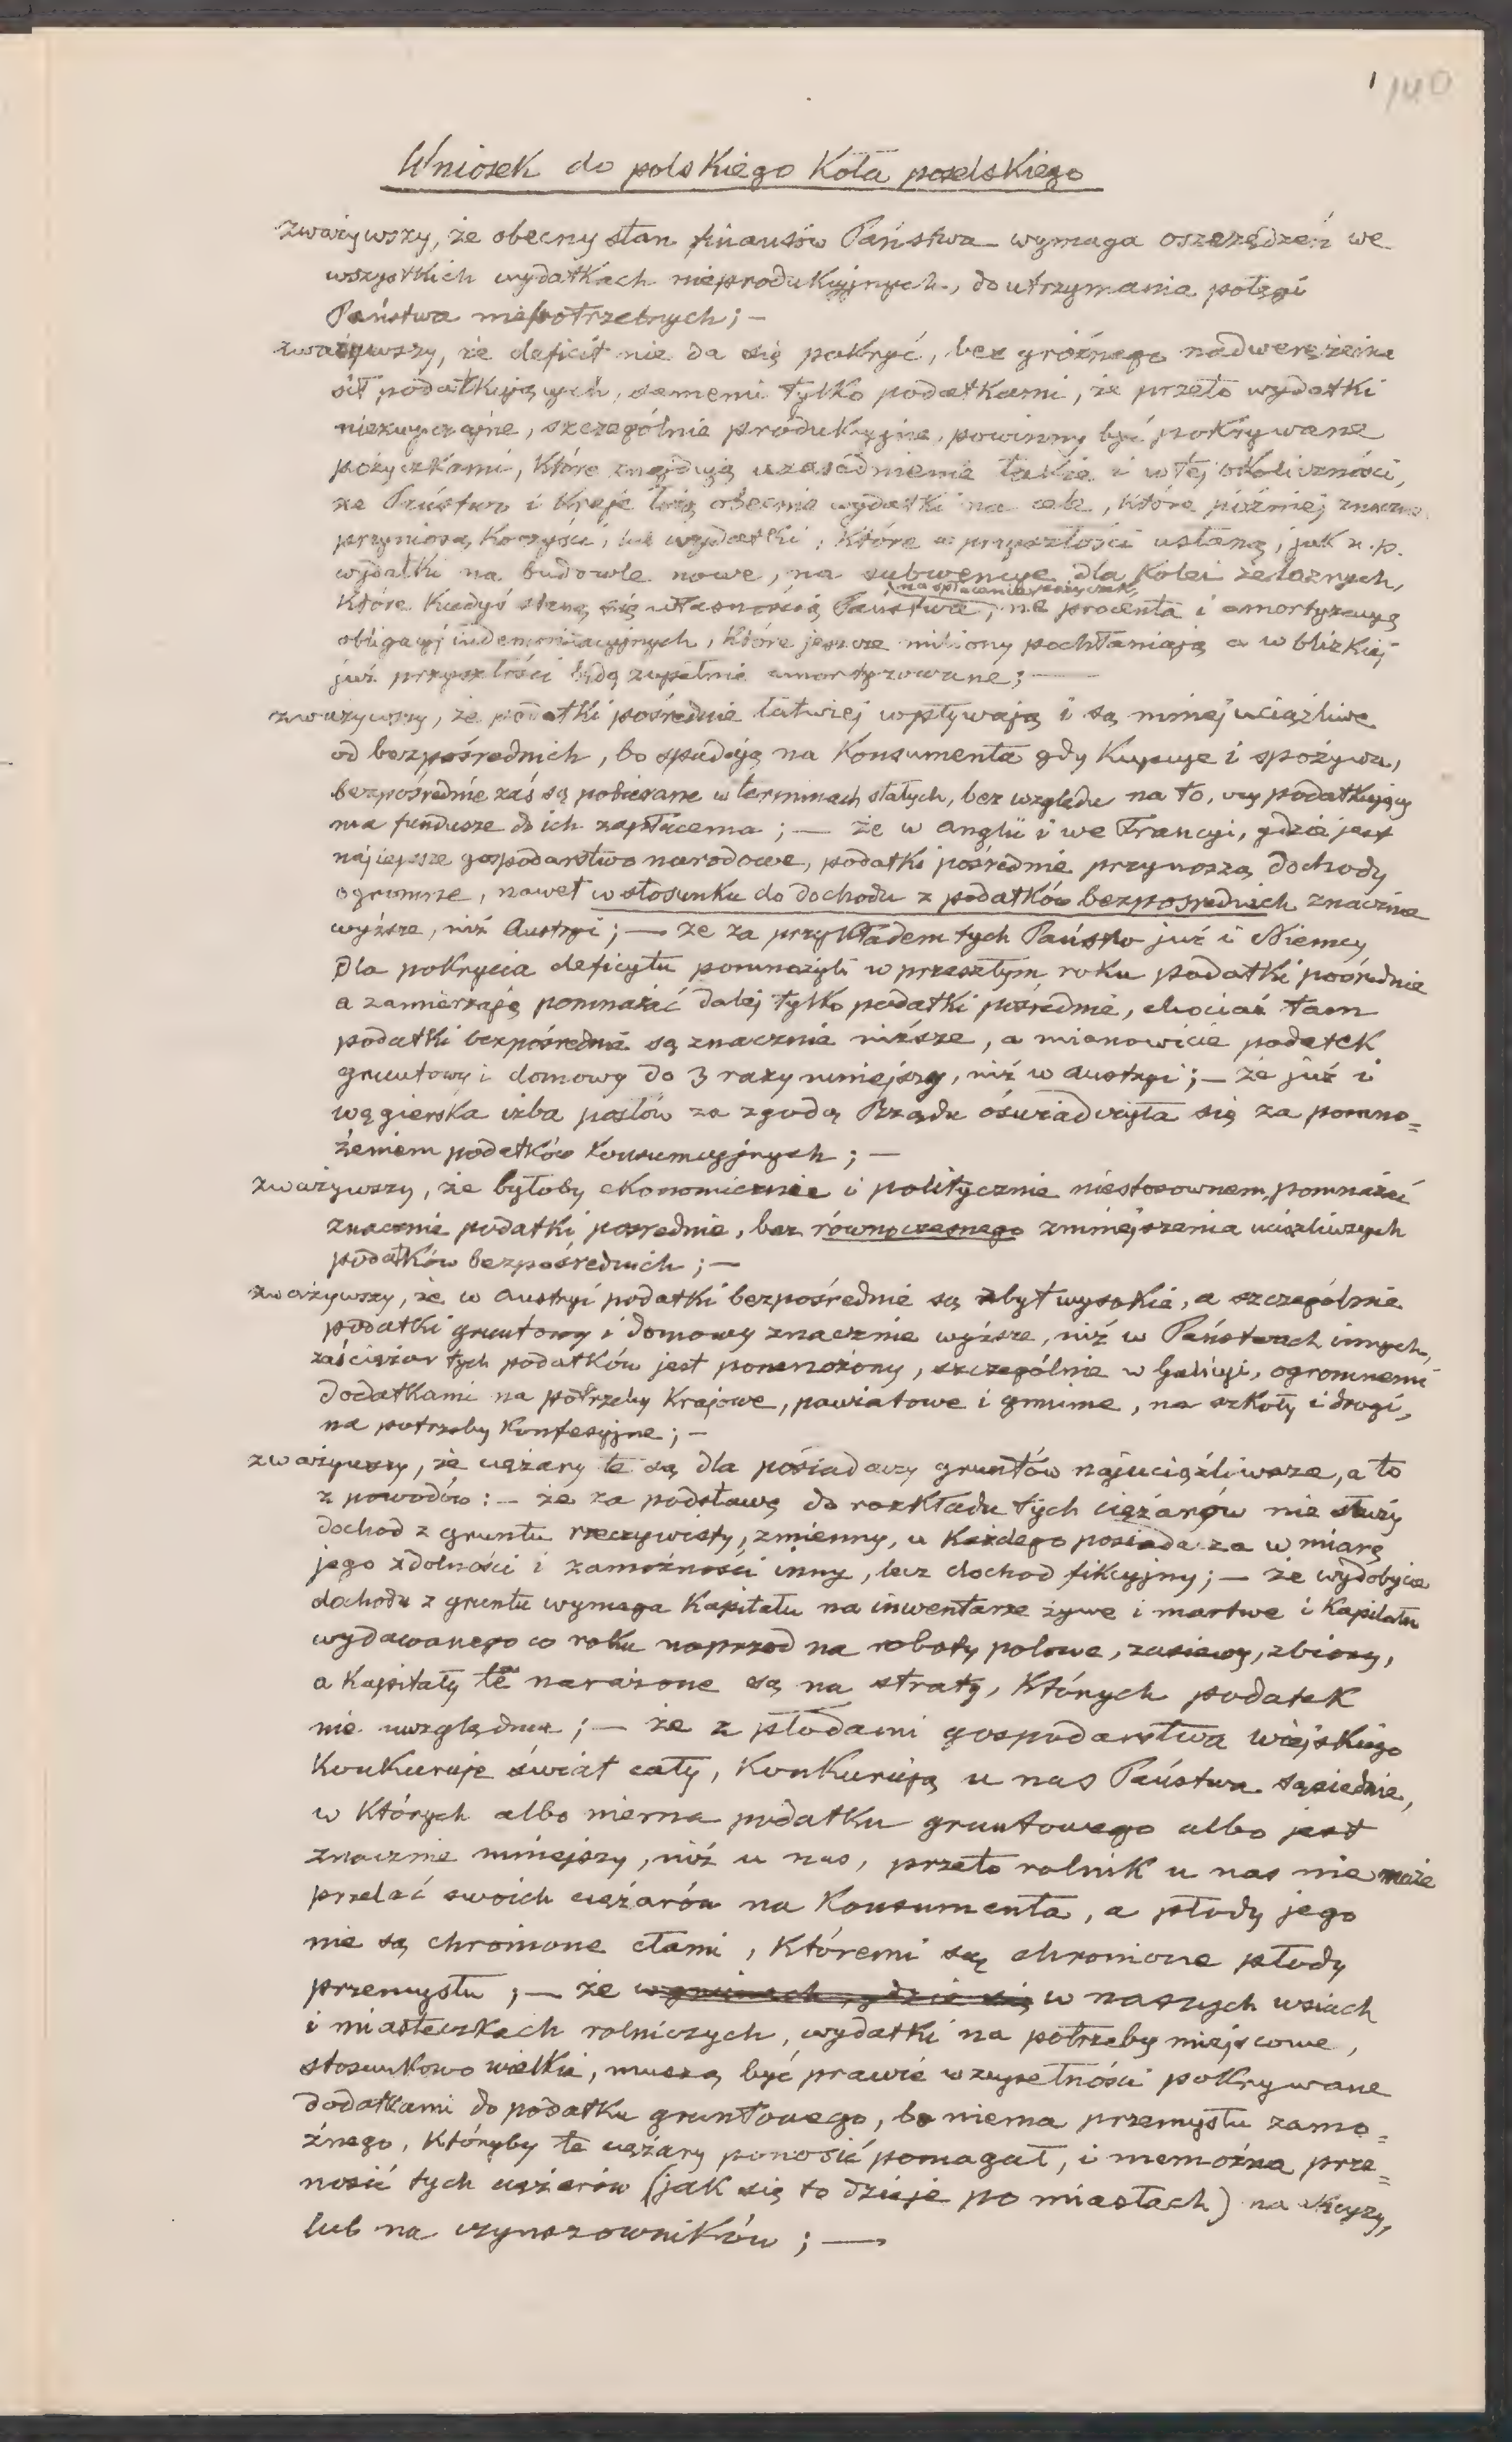 1 140
Wniosek do polskiego Koła poselskiego
zważywszy, że obecny stan finansów Państwa wymaga oszczędzeń we
wszystkich wydatkach nieprodukcyjnych, do utrzymania potęgi
Państwa niepotrzebnych; —
zważywszy, że deficit nie da się pokryć, bez groźnego nadwerężenia
sił podatkujących, samemi tylko podatkami, że przeto wydatki
niezwyczajne, szczególnie produkcyjne, powinny być pokrywane
pożyczkami, które znajdują uzasadnienie także i w tej okoliczności,
że Państwo i Kraje łożą obecnie wydatki na cele, które później znaczne
przyniosą korzyści, lub wydatki, które w przyszłości ustaną, jak n.p.
wydatki na budowle nowe, na subwencye dla kolei żelaznych,
na spłacenie pożyczek,
które kiedyś staną się własnością Państwa, na procenta i amortyzacyę
obligacyj indemnizacyjnych, które jeszcze miliony pochłaniają a w blizkiej
już przyszłości będą zupełnie amortyzowane; —
zważywszy, że podatki pośrednie łatwiej wpływają i są mniej uciążliwe
od bezpośrednich, bo spadają na konsumenta gdy kupuje i spożywa,
bezpośrednie zaś są pobierane w terminach stałych, bez względu na to, czy podatkujący
ma fundusze do ich zapłacenia; — że w Anglii i we Francyi, gdzie jest
najlepsze gospodarstwo narodowe, podatki pośrednie przynoszą dochody
ogromne, nawet w stosunku do dochodu z podatków bezpośrednich znacznie
wyższe, niż Austryi; — że za przykładem tych Państw już i Niemcy
dla pokrycia deficytu pomnożyli w przeszłym roku podatki pośrednie
a zamierzają pomnażać dalej tylko podatki pośrednie, chociaż tam
podatki bezpośrednie są znacznie niższe, a mianowicie podatek
gruntowy i domowy do 3 razy mniejszy, niż w Austryi; — że już i
węgierska izba posłów za zgodą Rządu oświadczyła się za pomno=
żeniem podatków konsumcyjnych; —
zważywszy, że byłoby ekonomicznie i politycznie niestosownem, pomnażać
znacznie podatki pośrednie, bez równoczesnego zmniejszenia uciążliwszych
podatków bezpośrednich; —
zważywszy, że w Austryi podatki bezpośrednie są zbyt wysokie, a szczególnie
podatki gruntowy i domowy znacznie wyższe, niż w Państwach innych,
zaś ciężar tych podatków jest pomnożony, szczególnie w Galicyi, ogromnemi
dodatkami na potrzeby krajowe, powiatowe i gminne, na szkoły i drogi,
na potrzeby konfesyjne; —
zważywszy, że ciężary te są dla posiadaczy gruntów najuciążliwsze, a to
z powodów: — że za podstawę do rozkładu tych ciężarów nie służy
dochod z gruntu rzeczywisty, zmienny, u każdego posiadacza w miarę
jego zdolności i zamożności inny, lecz dochod fikcyjny; — że wydobycie
dochodu z gruntu wymaga kapitału na inwentarze żywe i martwe i kapitału
wydawanego co roku naprzod na roboty polowe, zasiewy, zbiory,
a kapitały te narażone są na straty, których podatek
nie uwzględnia; — że z płodami gospodarstwa wiejskiego
konkuruje świat cały, konkurują u nas Państwa sąsiednie,
w których albo niema podatku gruntowego albo jest
znacznie mniejszy, niż u nas, przeto rolnik u nas nie może
przelać swoich ciężarów na konsumenta, a płody jego
nie są chronione cłami, któremi są chronione płody
przemysłu; — że w gminach, gdzie się w naszych wsiach
i miasteczkach rolniczych, wydatki na potrzeby miejscowe,
stosunkowo wielkie, muszą być prawie w zupełności pokrywane
dodatkami do podatku gruntowego, bo niema przemysłu zamo=
żnego, któryby te ciężary ponosić pomagał, i niemożna prze=
nosić tych ciężarów (jak się to dzieje po miastach) na
lub na czynszowników; —